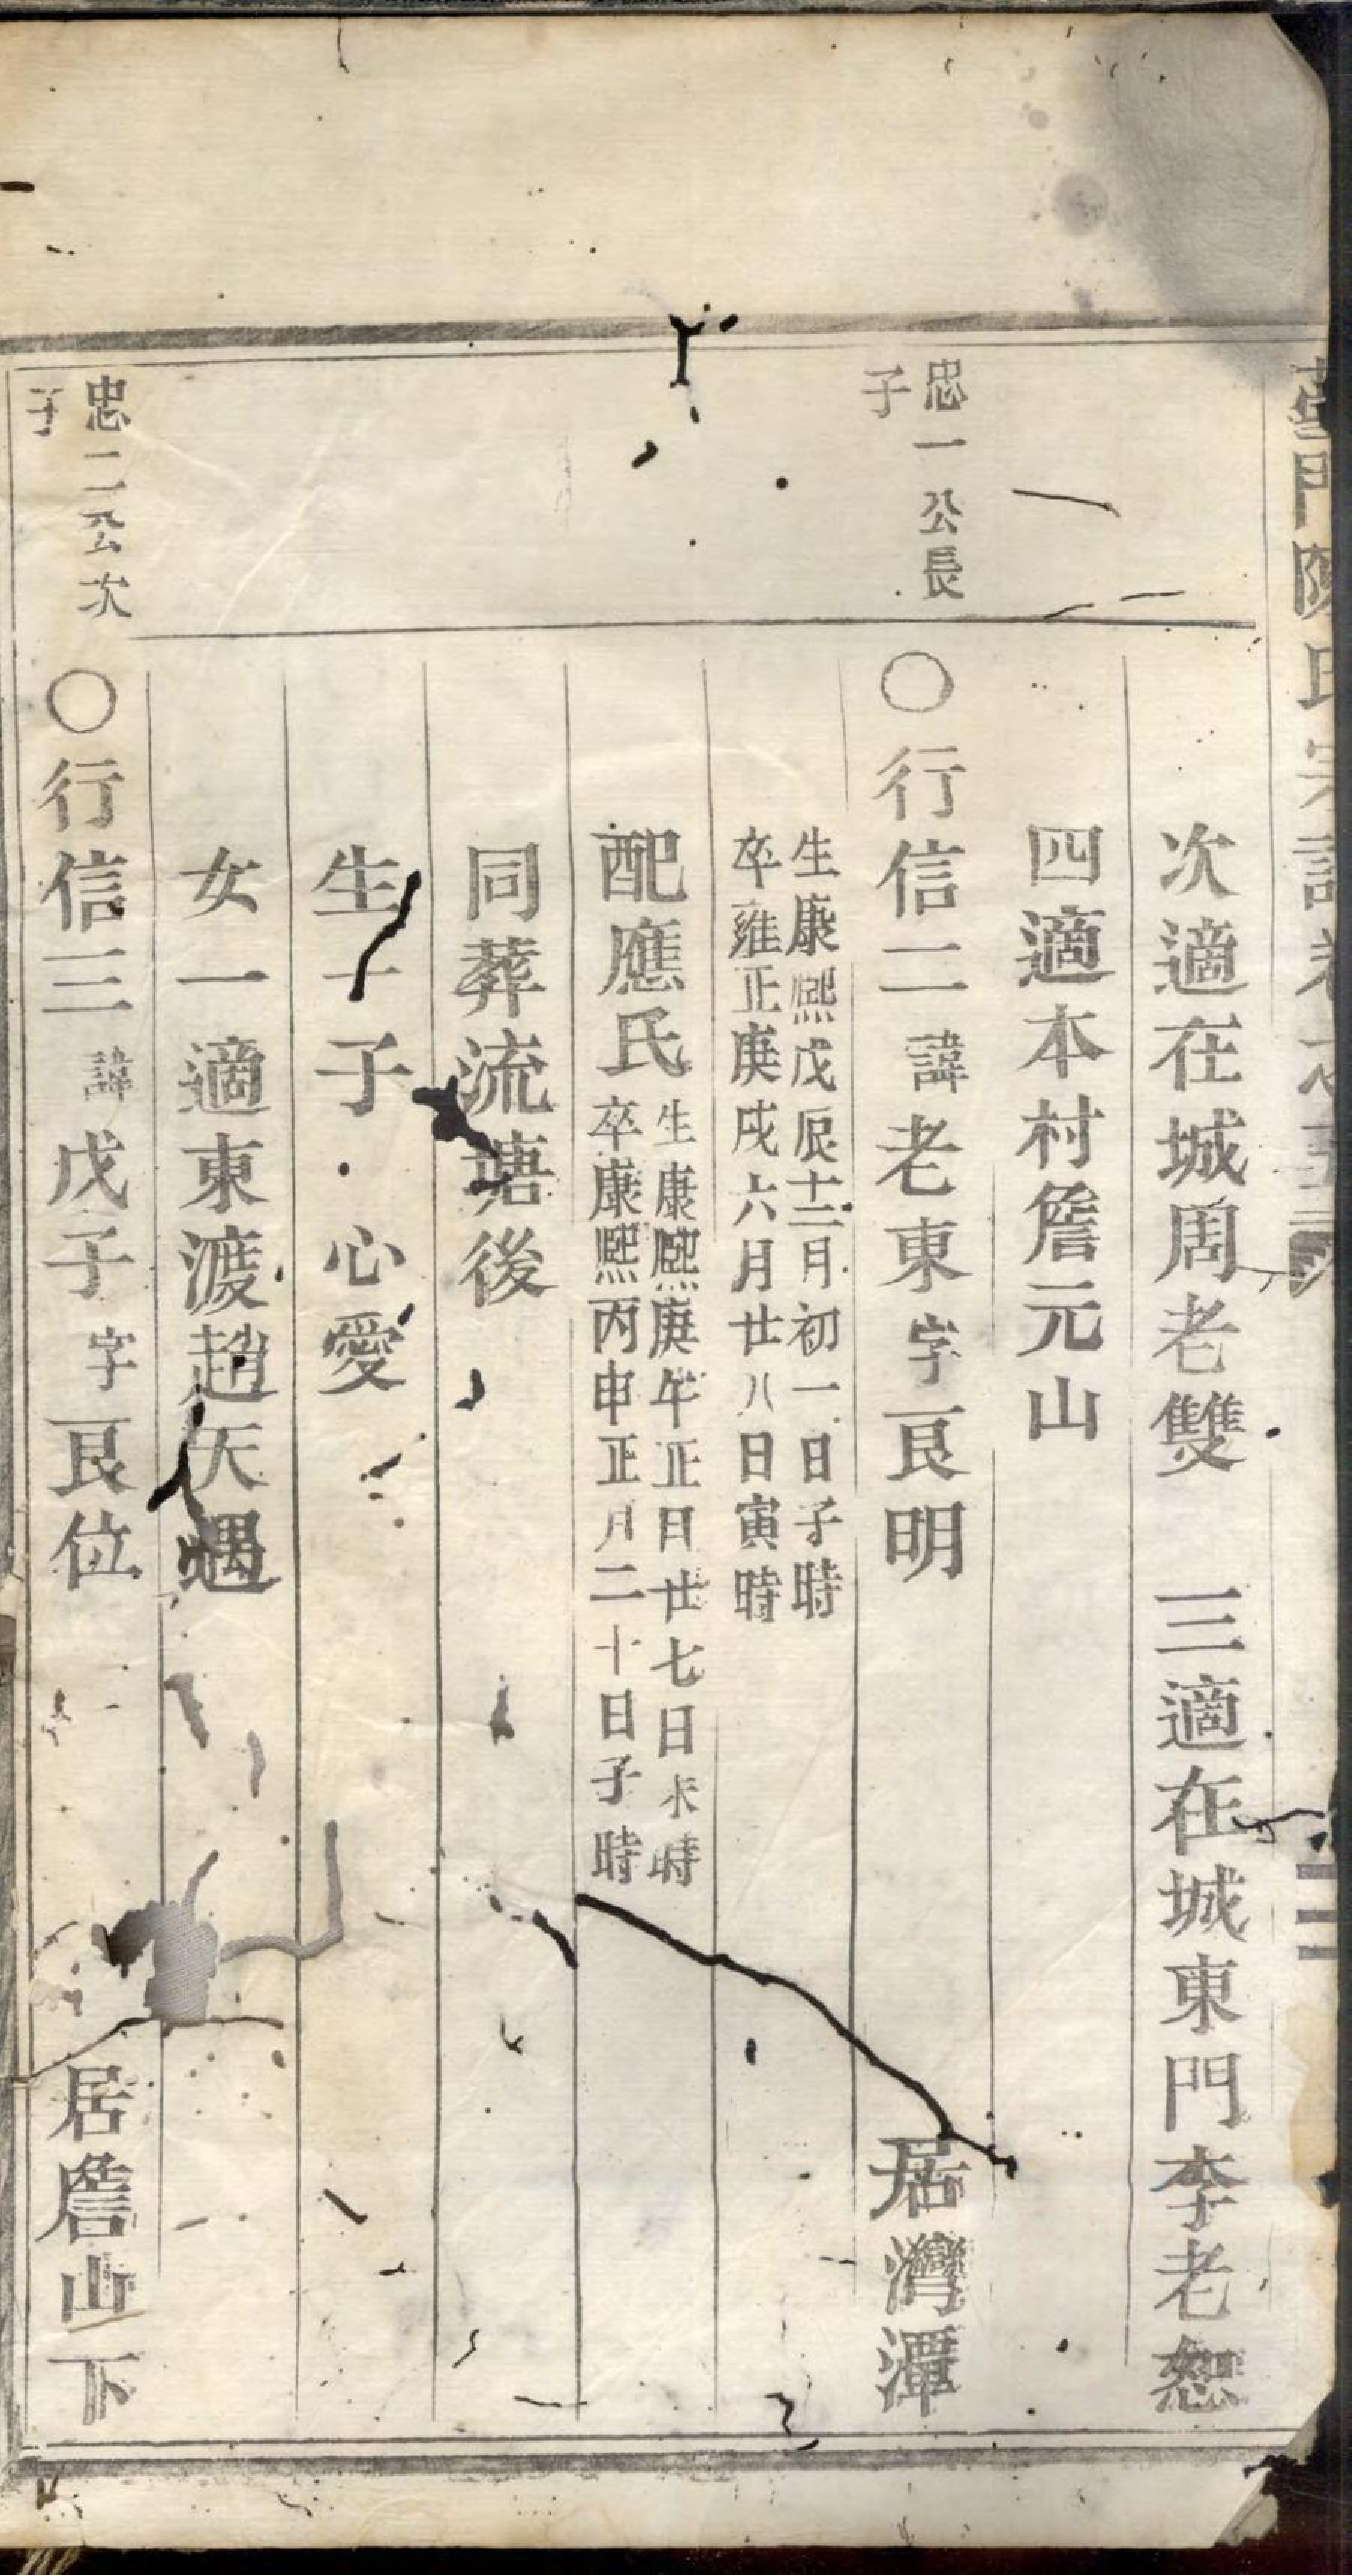 門陳氏宗譜卷之
次適在城周老雙　三適在城東門李老恕
四適本村詹元山
忠一公長
子
○行信二諱老東字艮明　居灣潭
生康熙戊辰十二月初一日子時
卒雍正庚戌六月廿八日寅時
配應氏
生康熙庚午正日廿七日未時
卒康熙丙申正月二十日子時
同葬流塘後
生一子　心愛
女一適東渡趙天遇
忠二公次
子
○行信三諱戊子字艮位　居詹山下